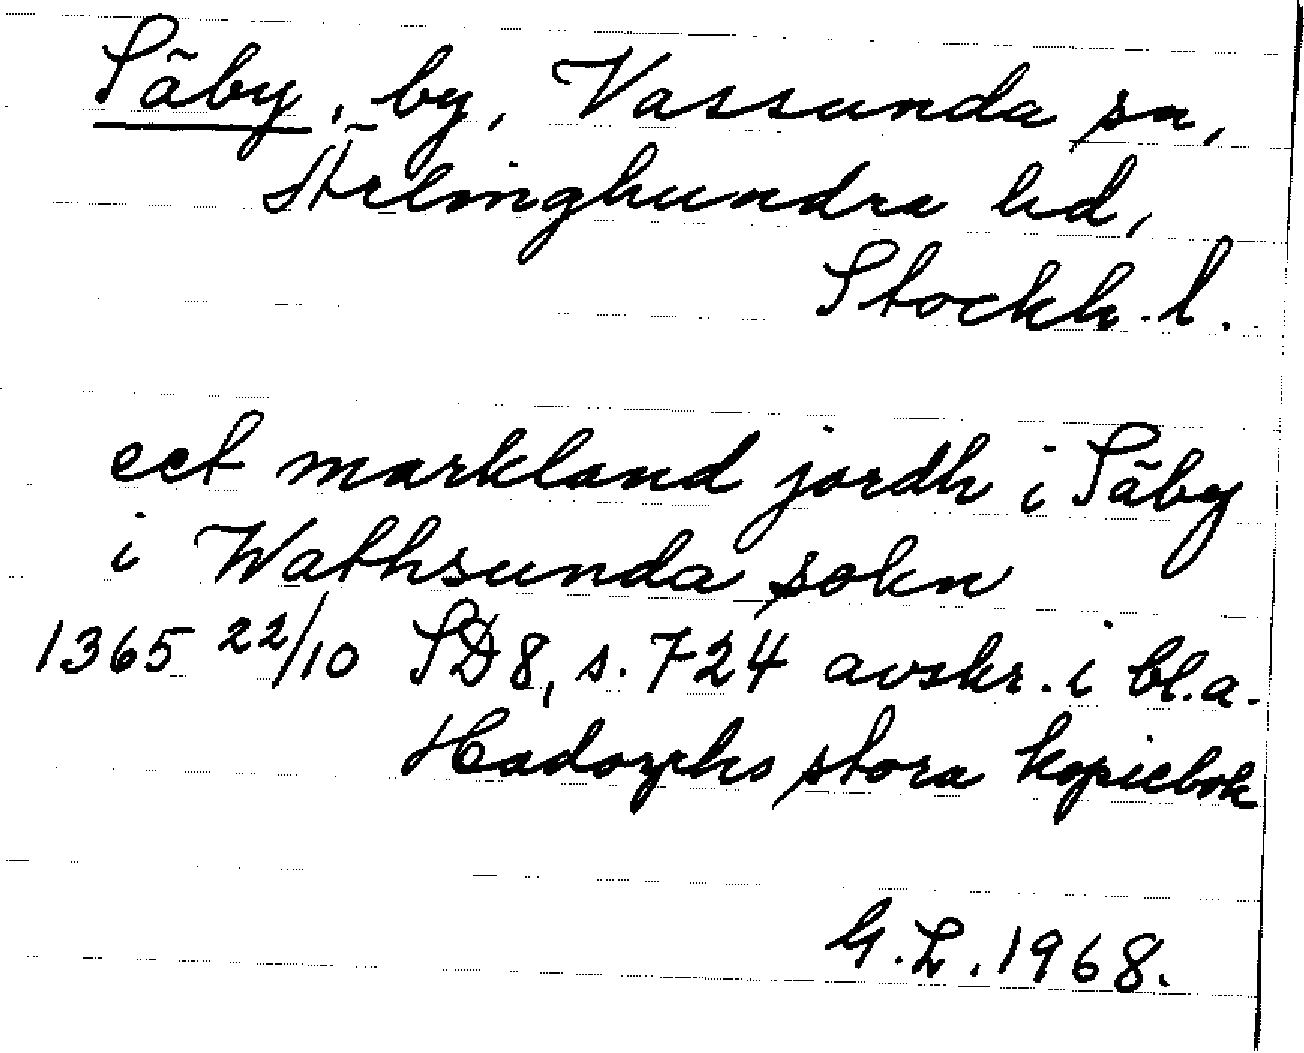 Säby, by, Vassunda sn,
Ärlinghundra hd,
Stockh. l.
eet markland jordh i Säby
i Wathsunda sokn
1365 22/10 SD 8, s. 724 avskr. i bl.a.
Hadorphs stora kopiebok
G. L. 1968.